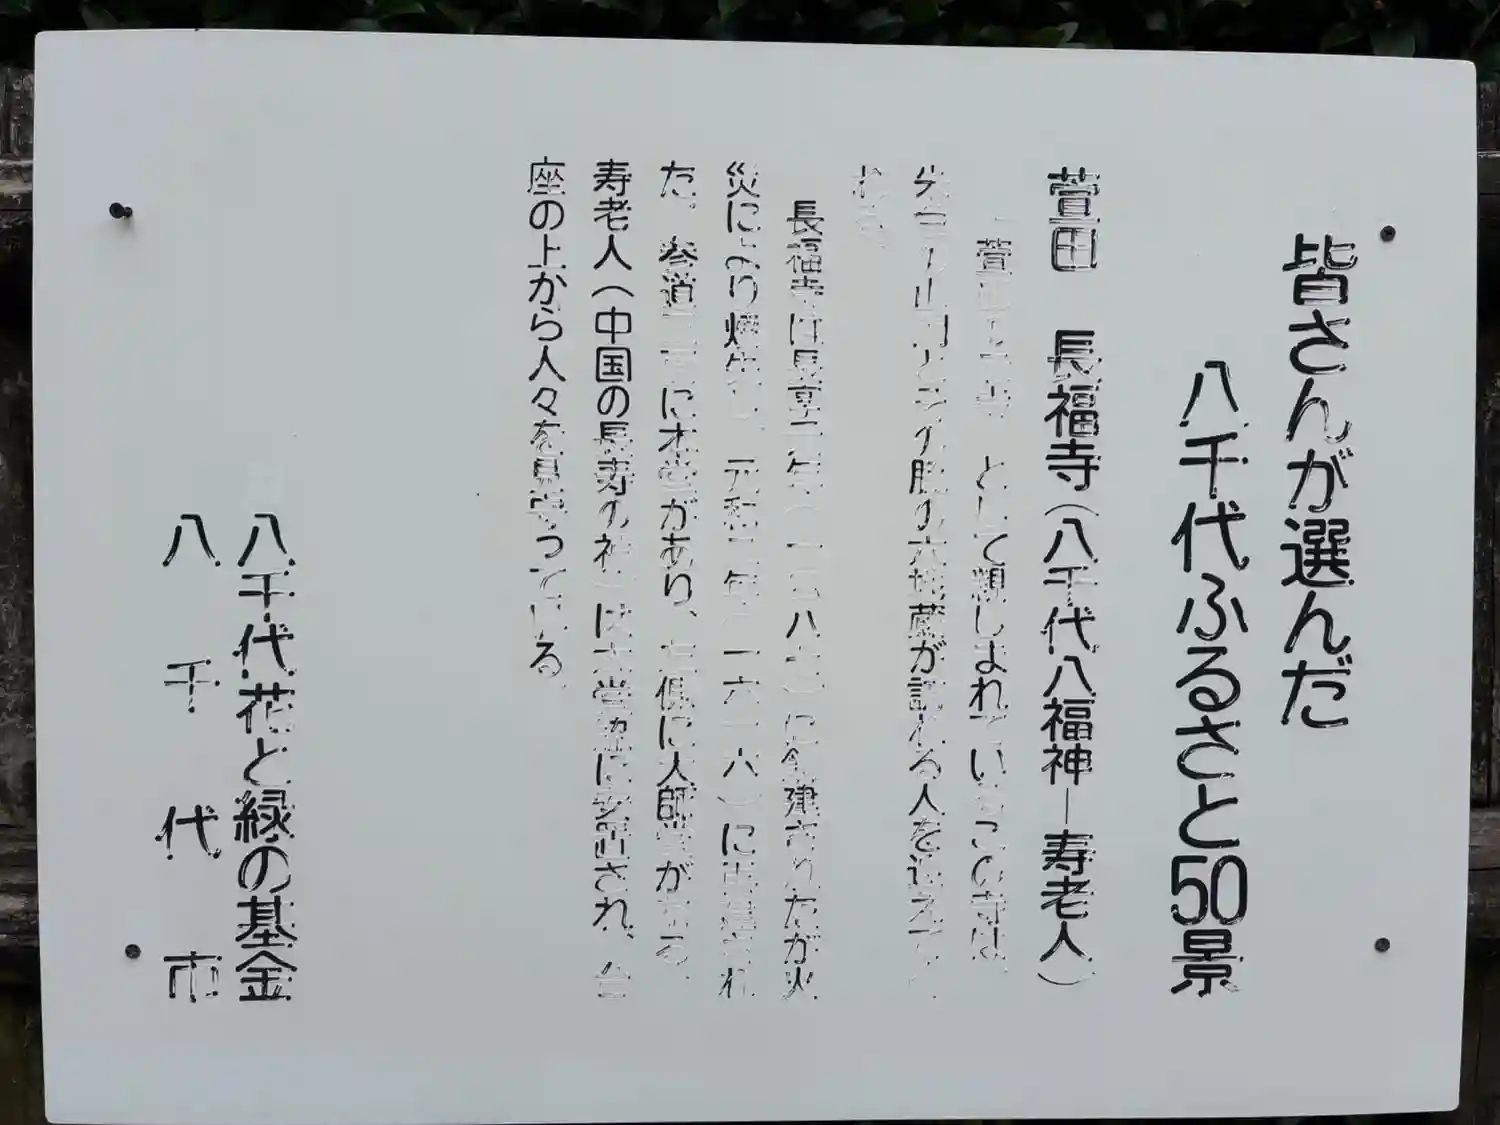 皆さんが選んだ
八千代ふるさと50景
萱田 長福寺(八千代八福神ー寿老人)
として親しまれているこの寺は、
山門とその脇の六地蔵が訪れる人を迎えて
れる。
長福寺は長享元年(一四八七)に創建されたが火
災により焼失し、元和二年(一六一六)に再建され
た。参道正面に本堂があり、左側に大師堂がある。
寿老人(中国の長寿の神)は本堂脇に安置され、台
座の上から人々を見守っている。
八千代花と緑の基金
八千代市